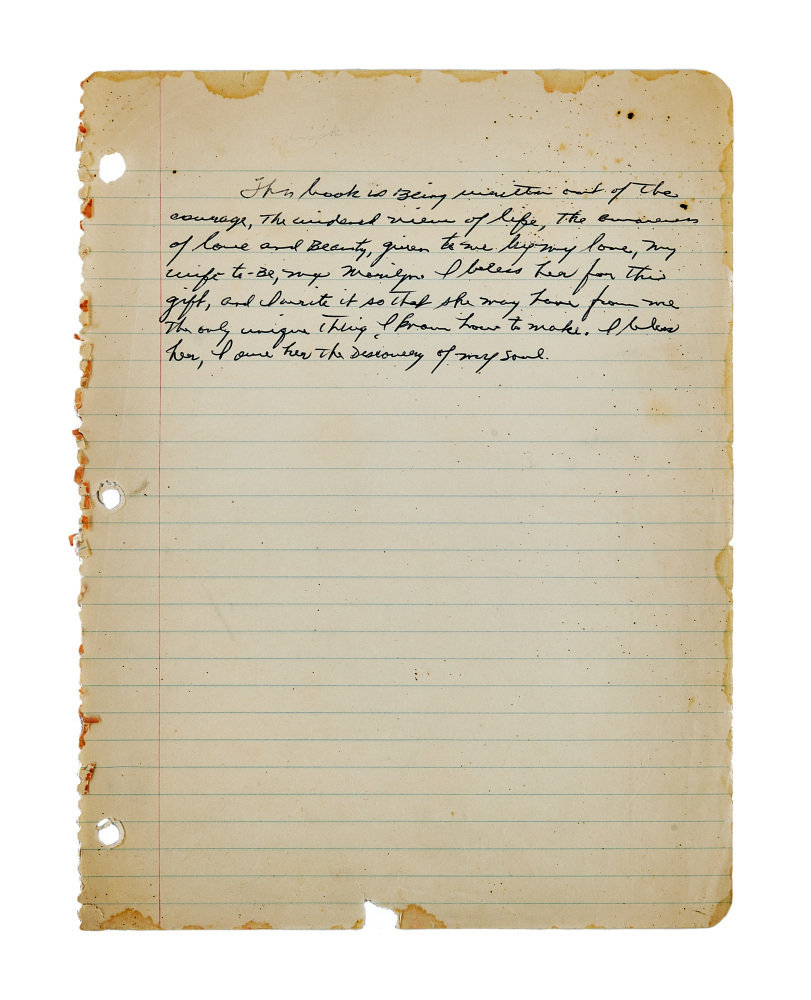 This book is Being written out of the
courage, The widened view of life, The awareness
of love and Beauty, given to me by my love, my
wife-to-Be, my Marilyn. I bless her for this
gift, and I write it so that she may have from me
The only unique Thing I know how to make. I bless
her, I owe her The Discovery of my soul.